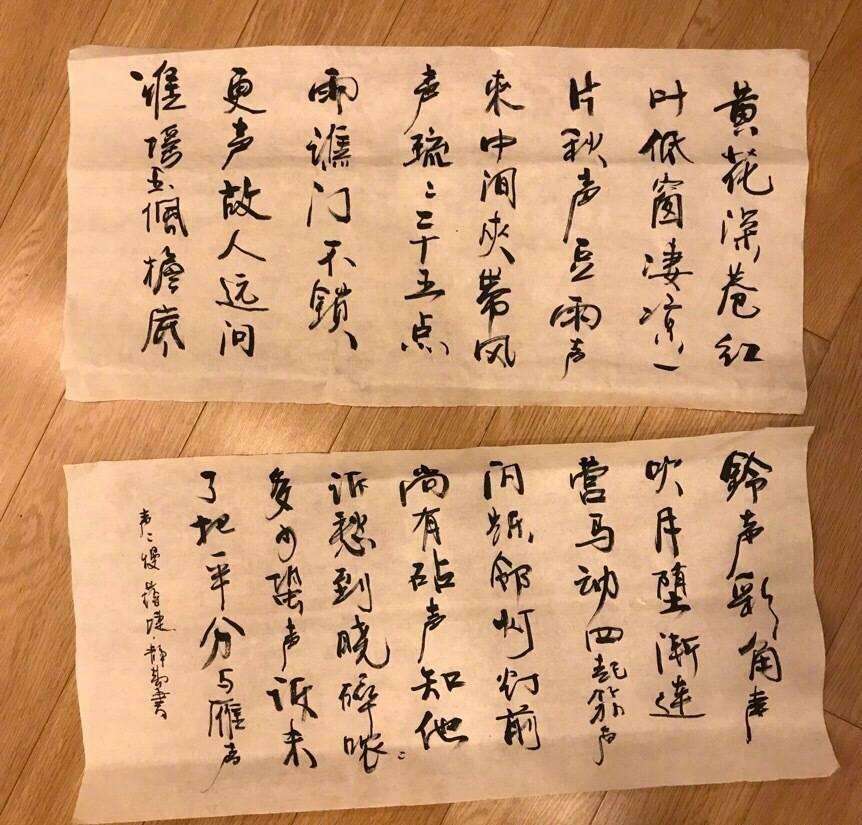 黄花深巷红
叶低窗凄凉一
片秋声豆雨声
来中间夾带风
声疏〻二十五点
丽谯门不鎖
更声故人远问
谁摇玉佩檐底
铃声彩角声
吹月堕渐连
营马动四起笳声
闪烁邻灯灯前
尚有砧声知他
诉愁到晓碎哝〻
多少蛩声诉未
了把一半分与雁声
声〻慢 蒋捷 静 书